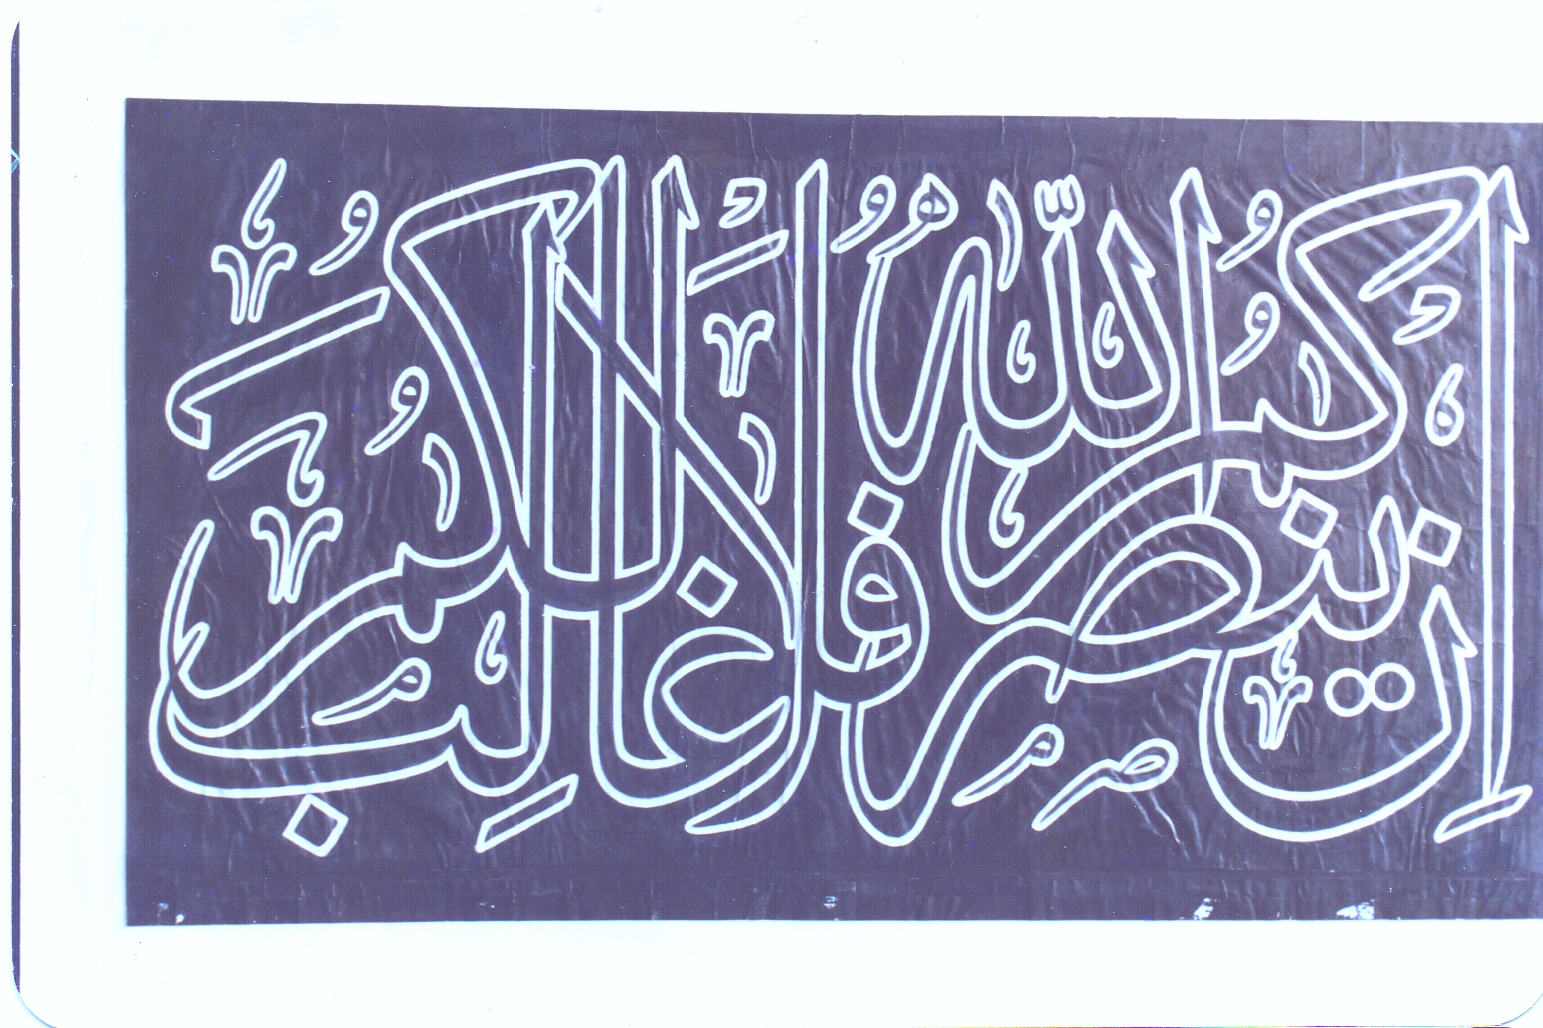 ان ينصركم الله فلا غالب لكم